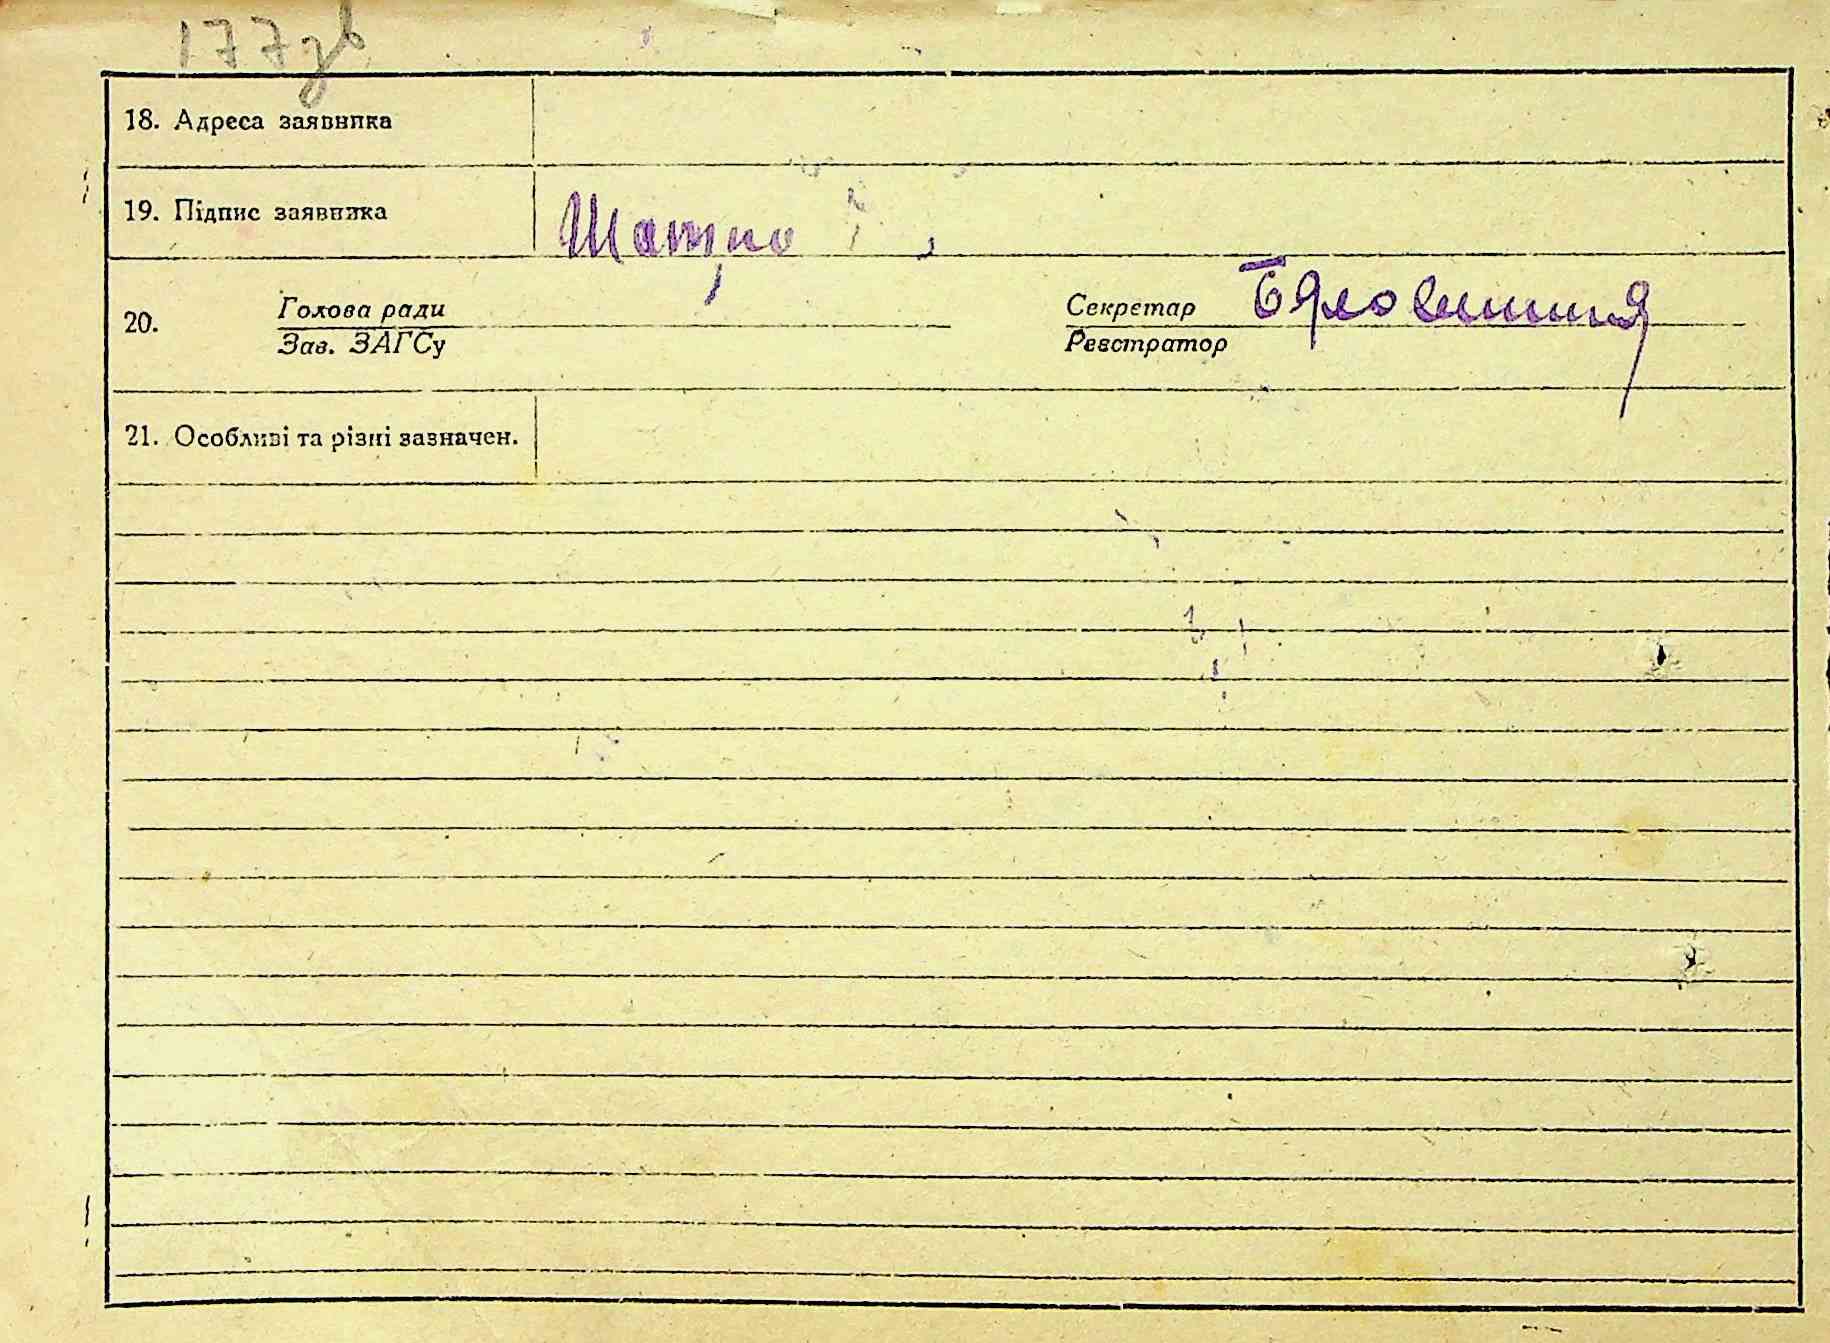 177зв
18. Адреса заявника
19. Підпис заявника
20. Голова ради Секретар
Зав. ЗАГСу Реєстратор
21. Особливі та різні зазначен.